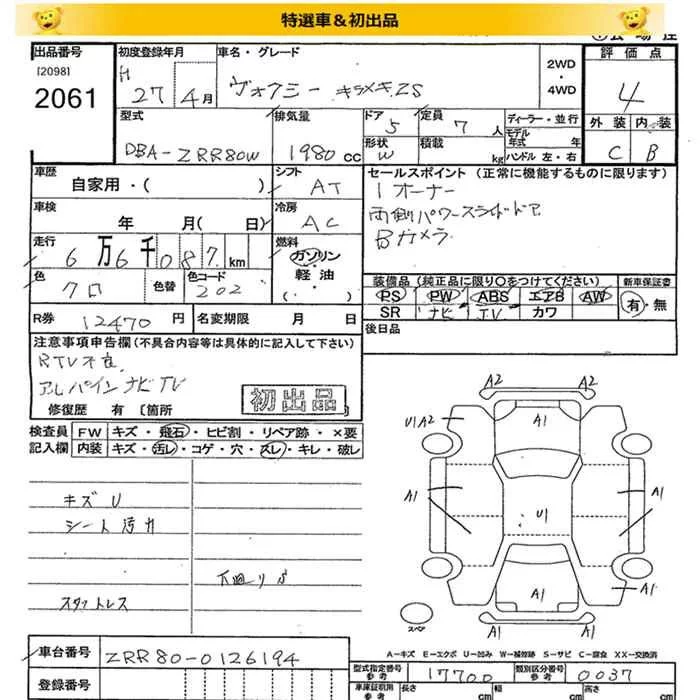 特選車＆初出品
出品番号
[2098]
2061
初度登録年月
H 27 年 4 月
車名・グレード
ヴォクシー キラメキZS
2WD
・
4WD
評価点
4
外装 内装
C B
型式
DBA-ZRR80W
排気量
1980 cc
ドア
5
定員
7 人
形状
W
積載
kg
ディーラー・並行
モデル
年式 年
ハンドル 左・右
車歴
自家用・( )
シフト
AT
セールスポイント (正常に機能するものに限ります)
1オーナー
両側パワースライドドア
Bカメラ
車検
年 月( 日)
冷房
AC
走行
6万6千087 km
燃料
ガソリン
・
軽油
( ・ )
色
クロ
色替
色コード
202
装備品(純正品に限り〇をつけてください)
PS PW ABS エアB AW
SR ナビ TV カワ
新車保証書
有・無
R券 12470 円
名変期限 月 日
後日品
注意事項申告欄(不具合内容等は具体的に記入して下さい)
RTV不良
アルパインナビTV
初出品
修復歴 有 [箇所 ]
検査員
記入欄
FW キズ・飛石・ヒビ割・リペア跡・×要
内装 キズ・汚レ・コゲ・穴・スレ・キレ・破レ
キズU
シート汚れ
下廻りサ
スタットレス
A2 A2
U1A2 A1
A1 U1 A1
A1 A1
A1 A1
スペア
A-キズ E-エクボ U-凹み W-補修跡 S-サビ C-腐食 XX-交換済
車台番号
ZRR80-0126194
登録番号
型式指定番号
参考
17700
類別区分番号
参考
0037
車庫証明用
参考
長さ cm
幅 cm
高さ cm